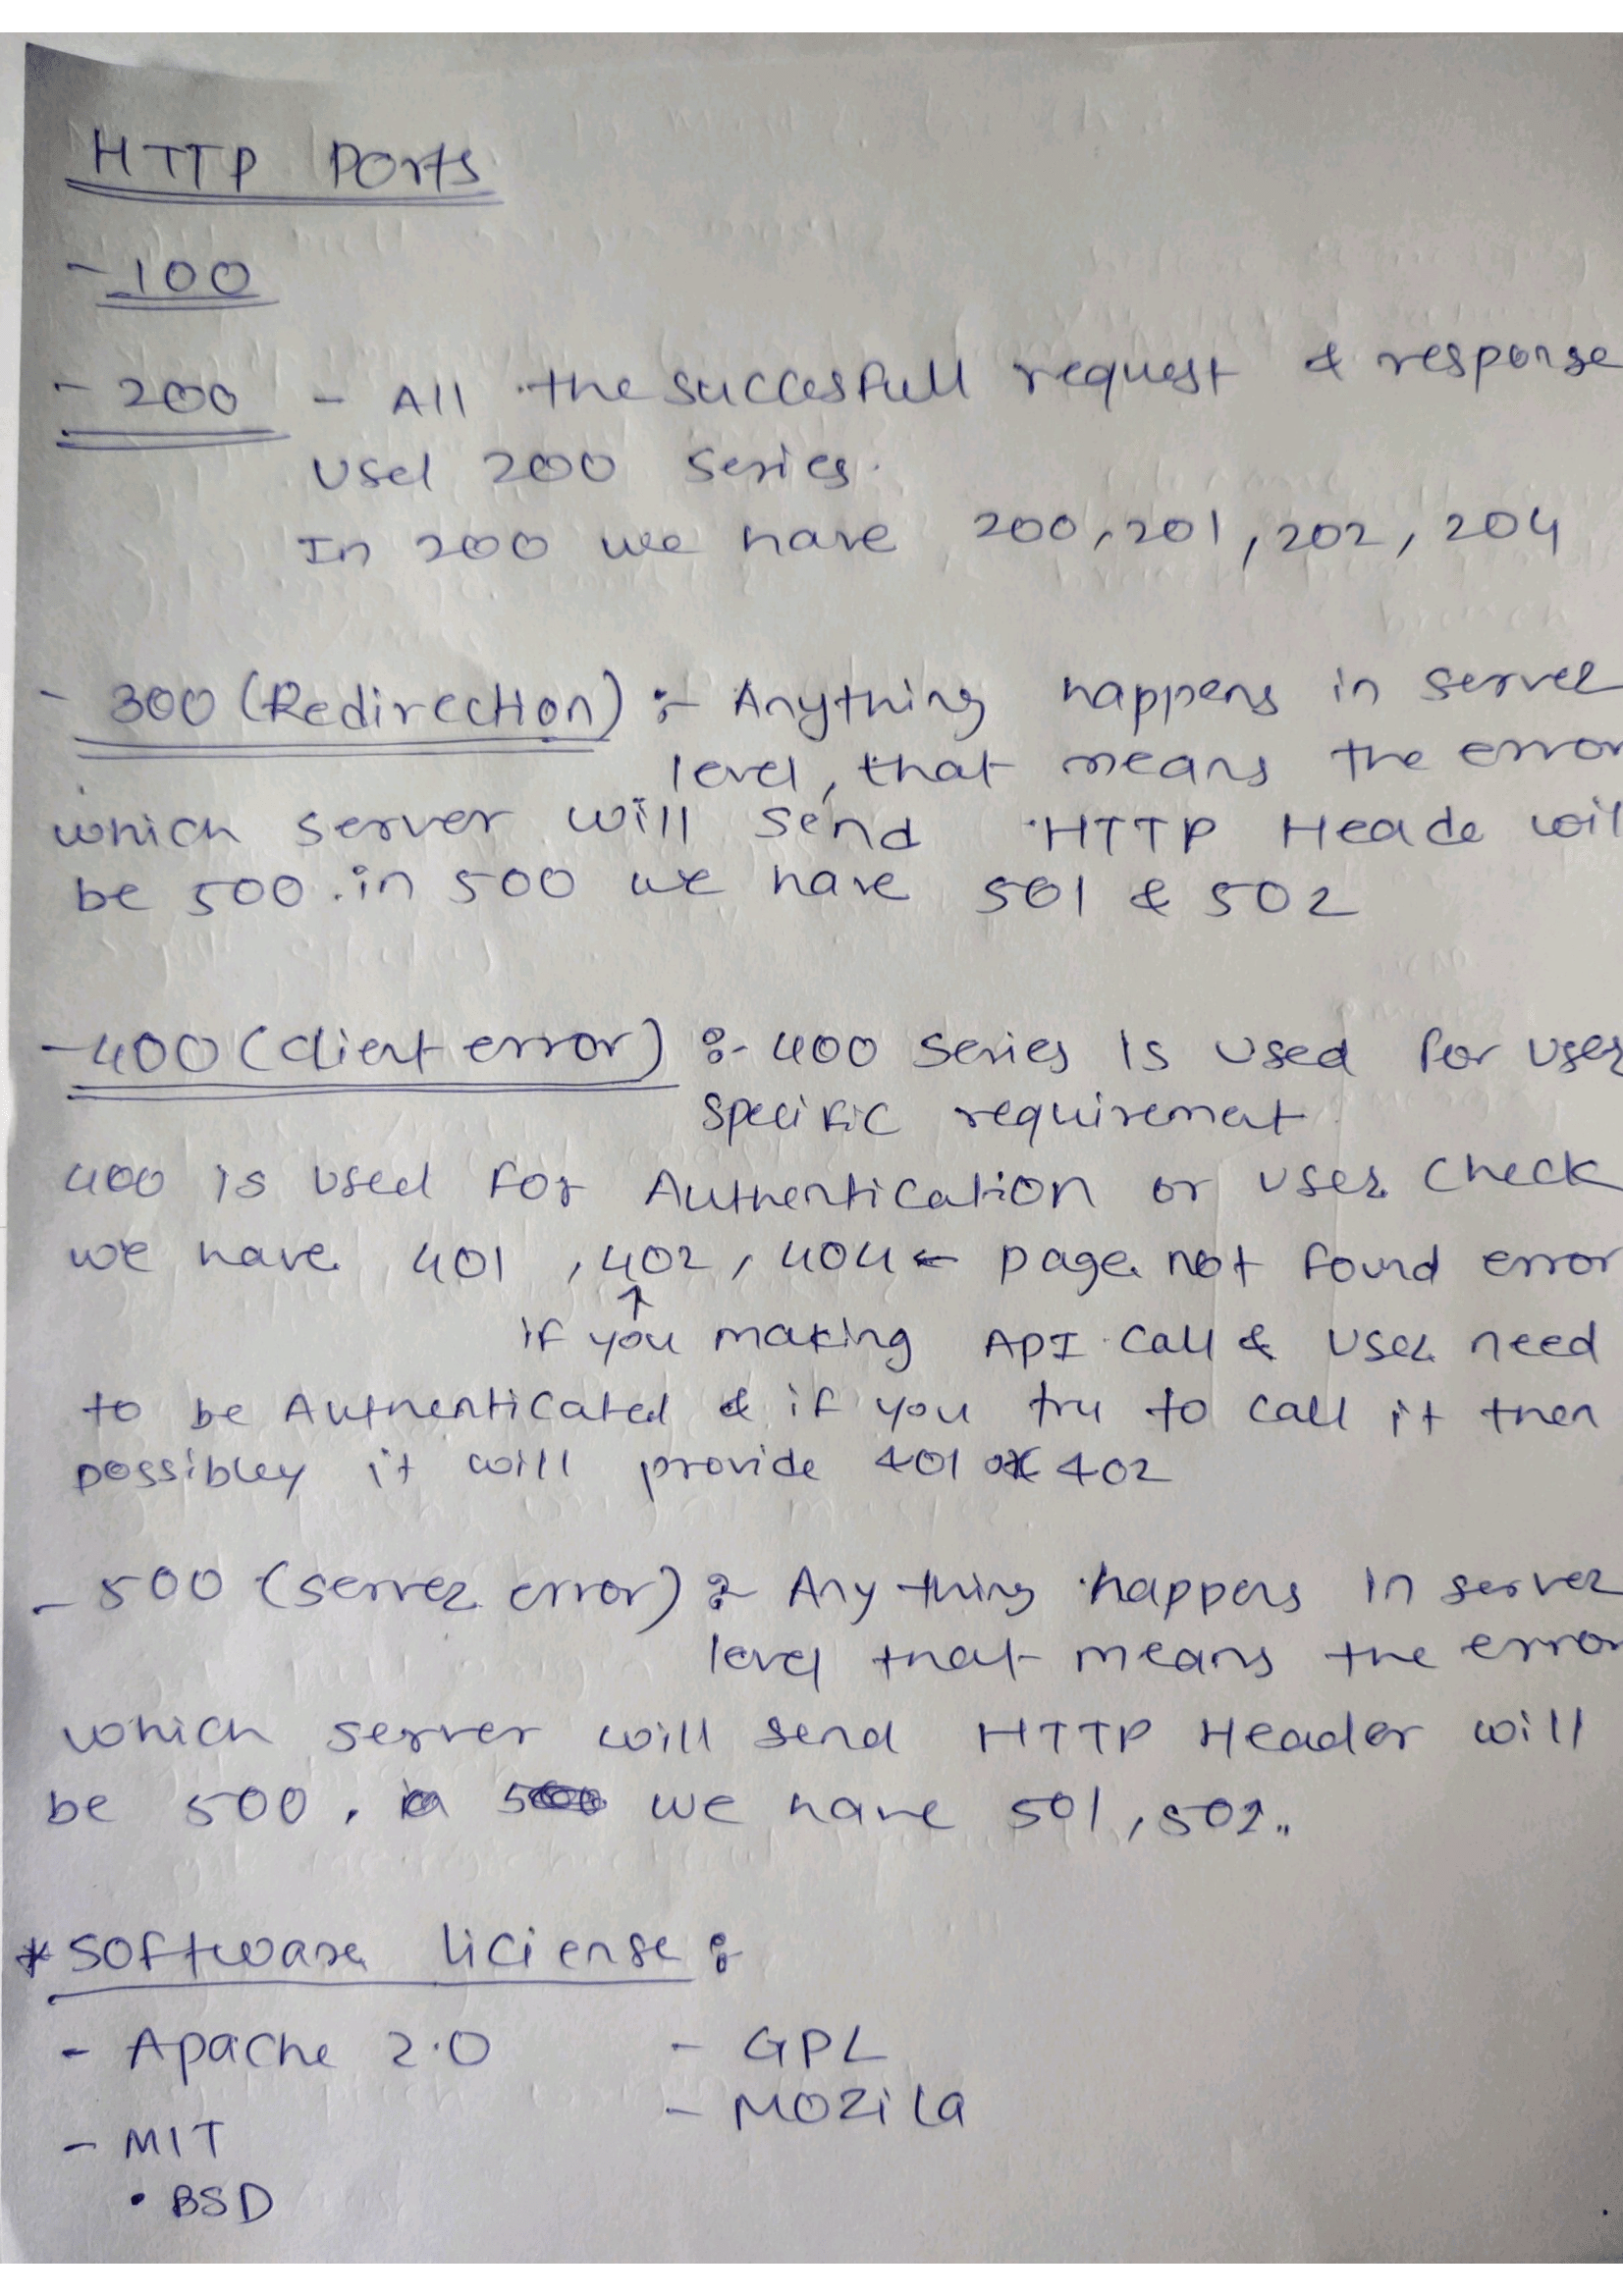 HTTP Ports
- 100
- 200 - All the succesfull request & response
Used 200 series.
In 200 we have 200, 201, 202, 204
- 300 (Redirection) :- Anything happens in server
level, that means the error
which server will send HTTP Heade will
be 500. in 500 we have 501 & 502
- 400 (client error) :- 400 series is used for user
specific requirement
400 is used for Authentication or user check
we have 401, 402, 404 ← page not found error
↑
if you making API call & user need
to be Authenticated & if you try to call it then
possibley it will provide 401 or 402
- 500 (server error) :- Any thing happens in server
level that means the error
which server will send HTTP Header will
be 500. we have 501, 502..
* Software liciense :
- Apache 2.0 - GPL
- Mozila
- MIT
• BSD